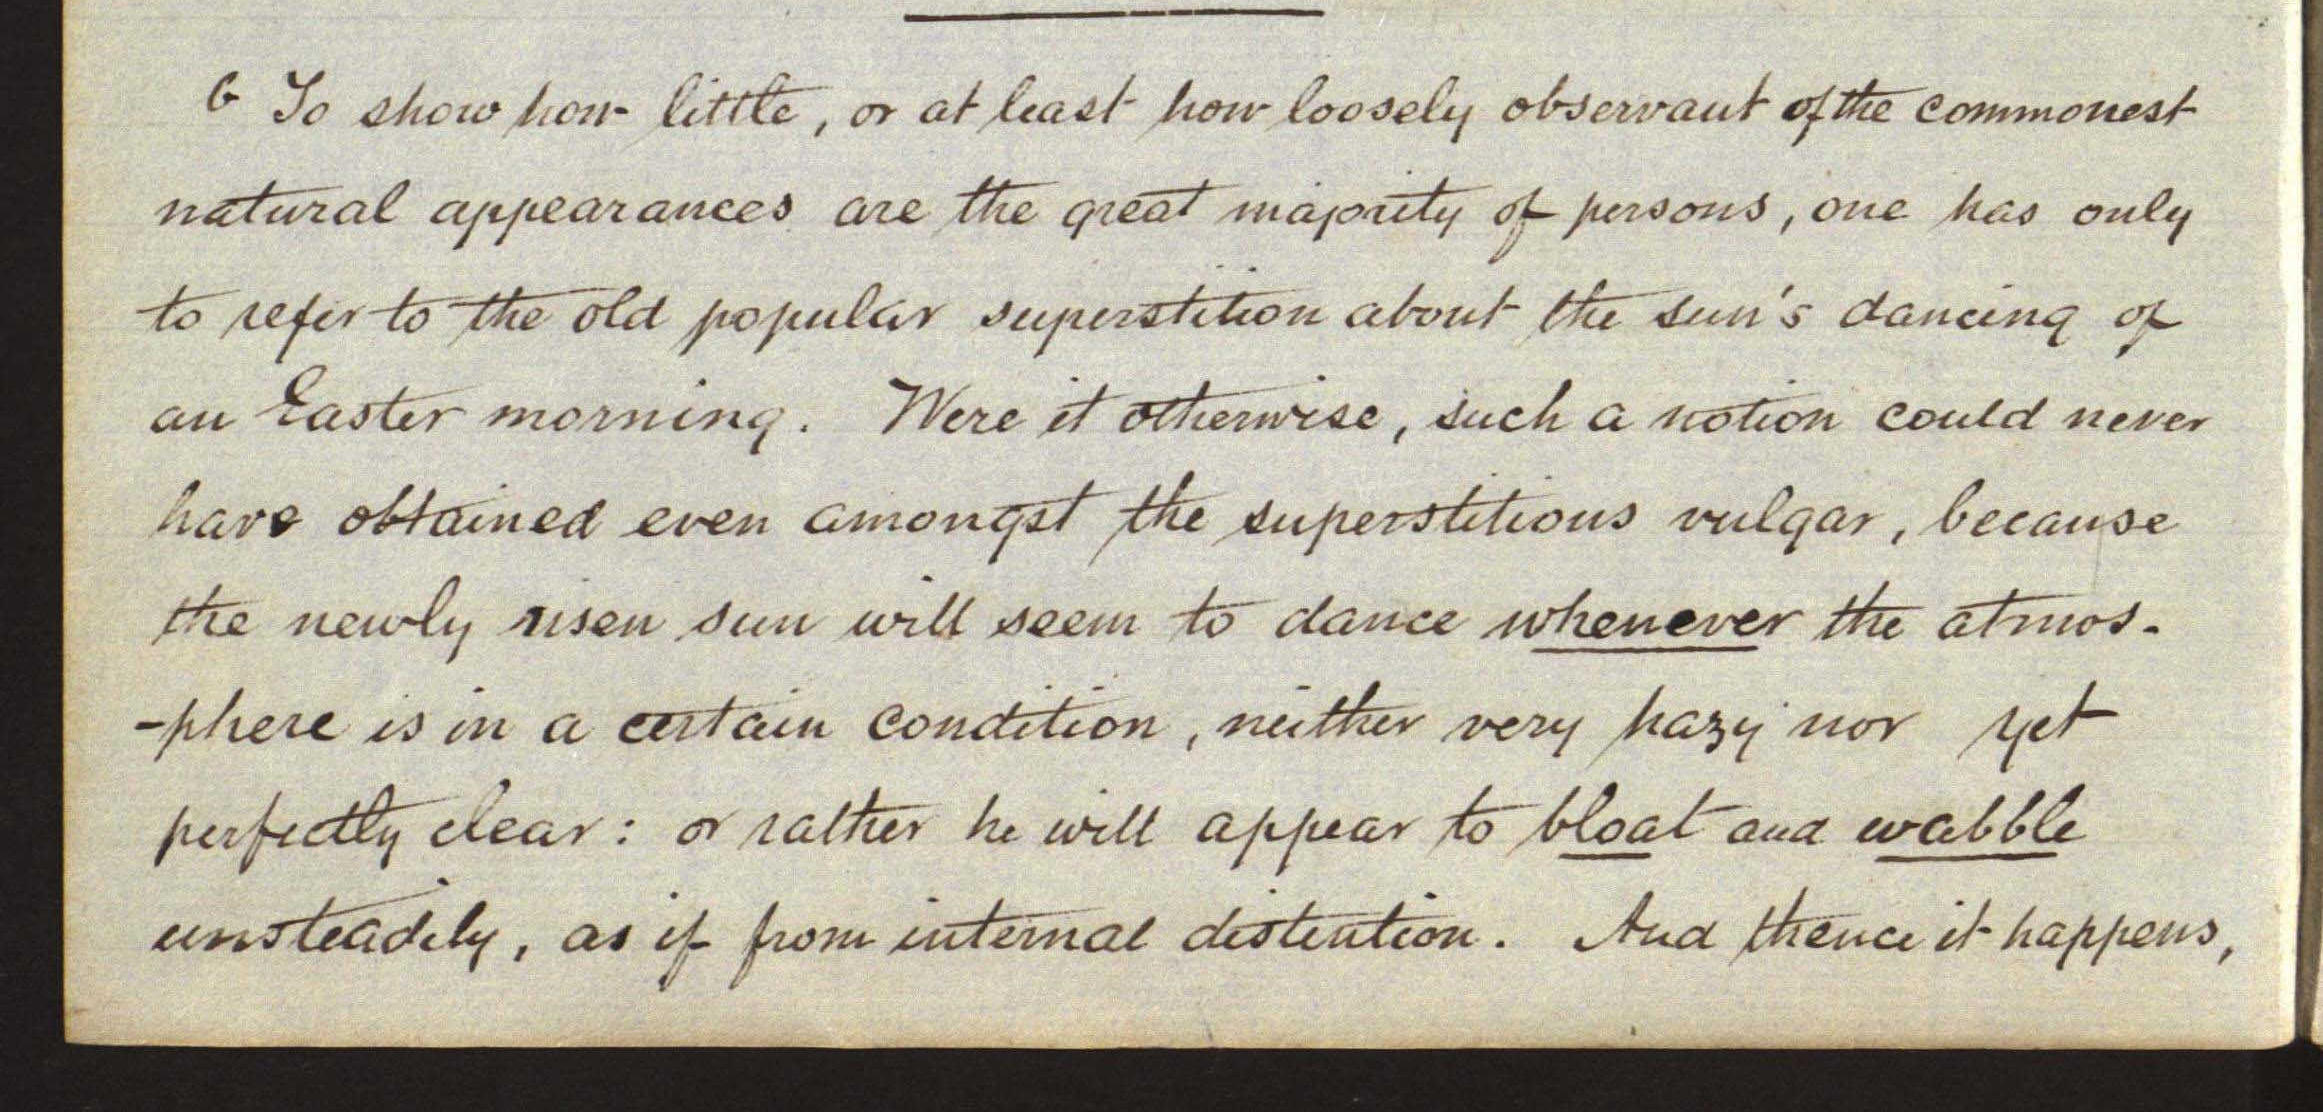 6 To show how little, or at least how loosely observant of the commonest
natural appearances are the great majority of persons, one has only
to refer to the old popular superstition about the sun's dancing of
an Easter morning. Were it otherwise, such a notion could never
have obtained even amongst the superstitious vulgar, because
the newly risen sun will seem to dance whenever the atmos-
-phere is in a certain condition, neither very hazy nor yet
perfectly clear: or rather he will appear to bloat and wabble
unsteadily, as if from internal distention. And thence it happens,